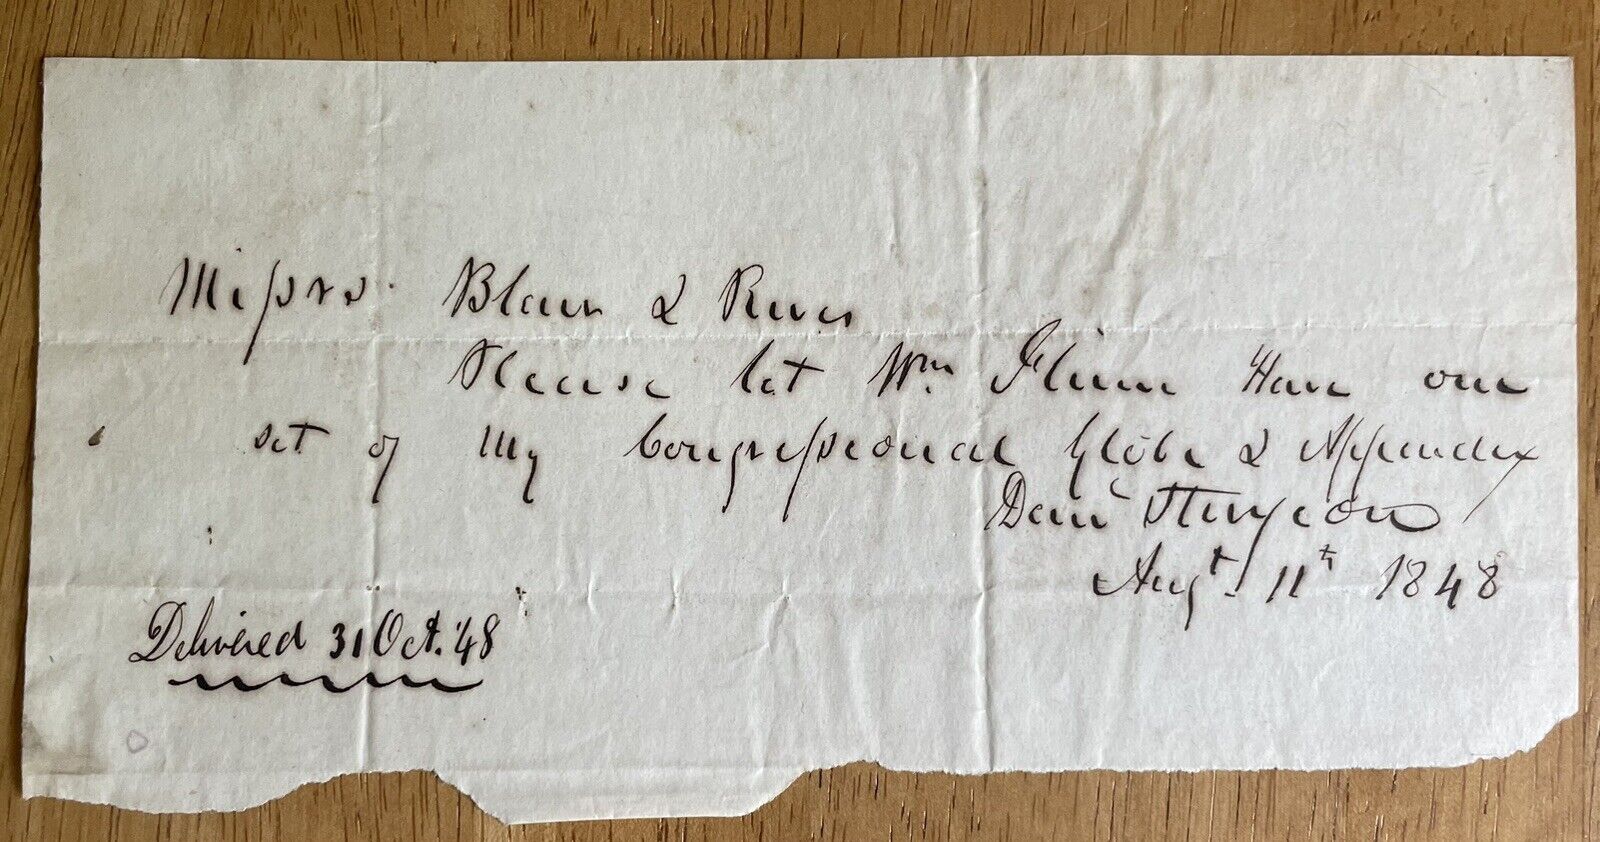 Messrs. Blair & Rives
Please let Wm. Flinn Have one
set of My Congressional Globe & Appendix
Danl Sturgeon
Augt. 11th 1848
Delivered 31 Oct. '48